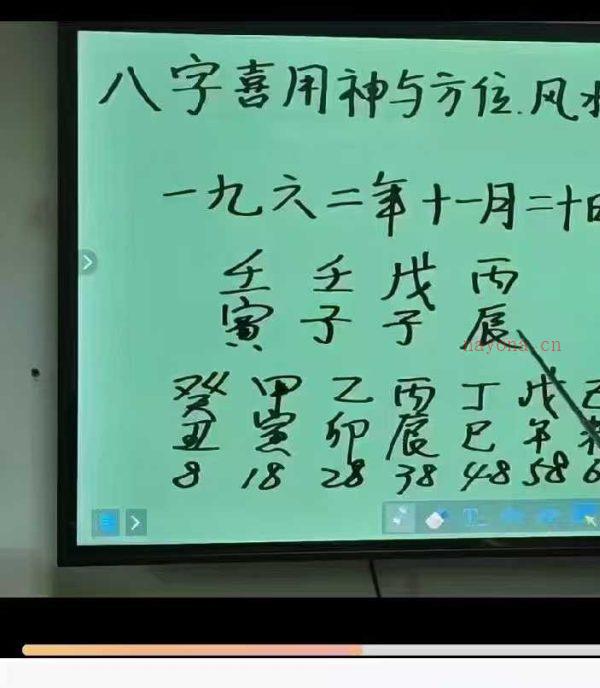 八字喜用神与方位.风水
一九六二年十一月二十日
壬 壬 戊 丙
寅 子 子 辰
nayona.cn
癸 甲 乙 丙 丁 戊 己
丑 寅 卯 辰 巳 午 未
8 18 28 38 48 58 6
T